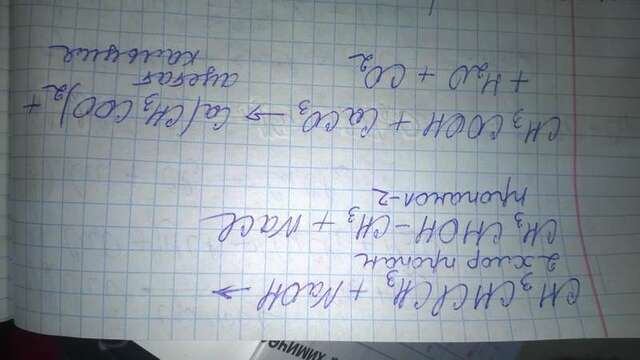 CH₃CHClCH₃ + NaOH →
2 хлор пропан
CH₃CHOH–CH₃ + NaCl
пропанол-2
CH₃COOH + CaCO₃ → Ca(CH₃COO)₂ +
ацетат
кальция
+ H₂O + CO₂